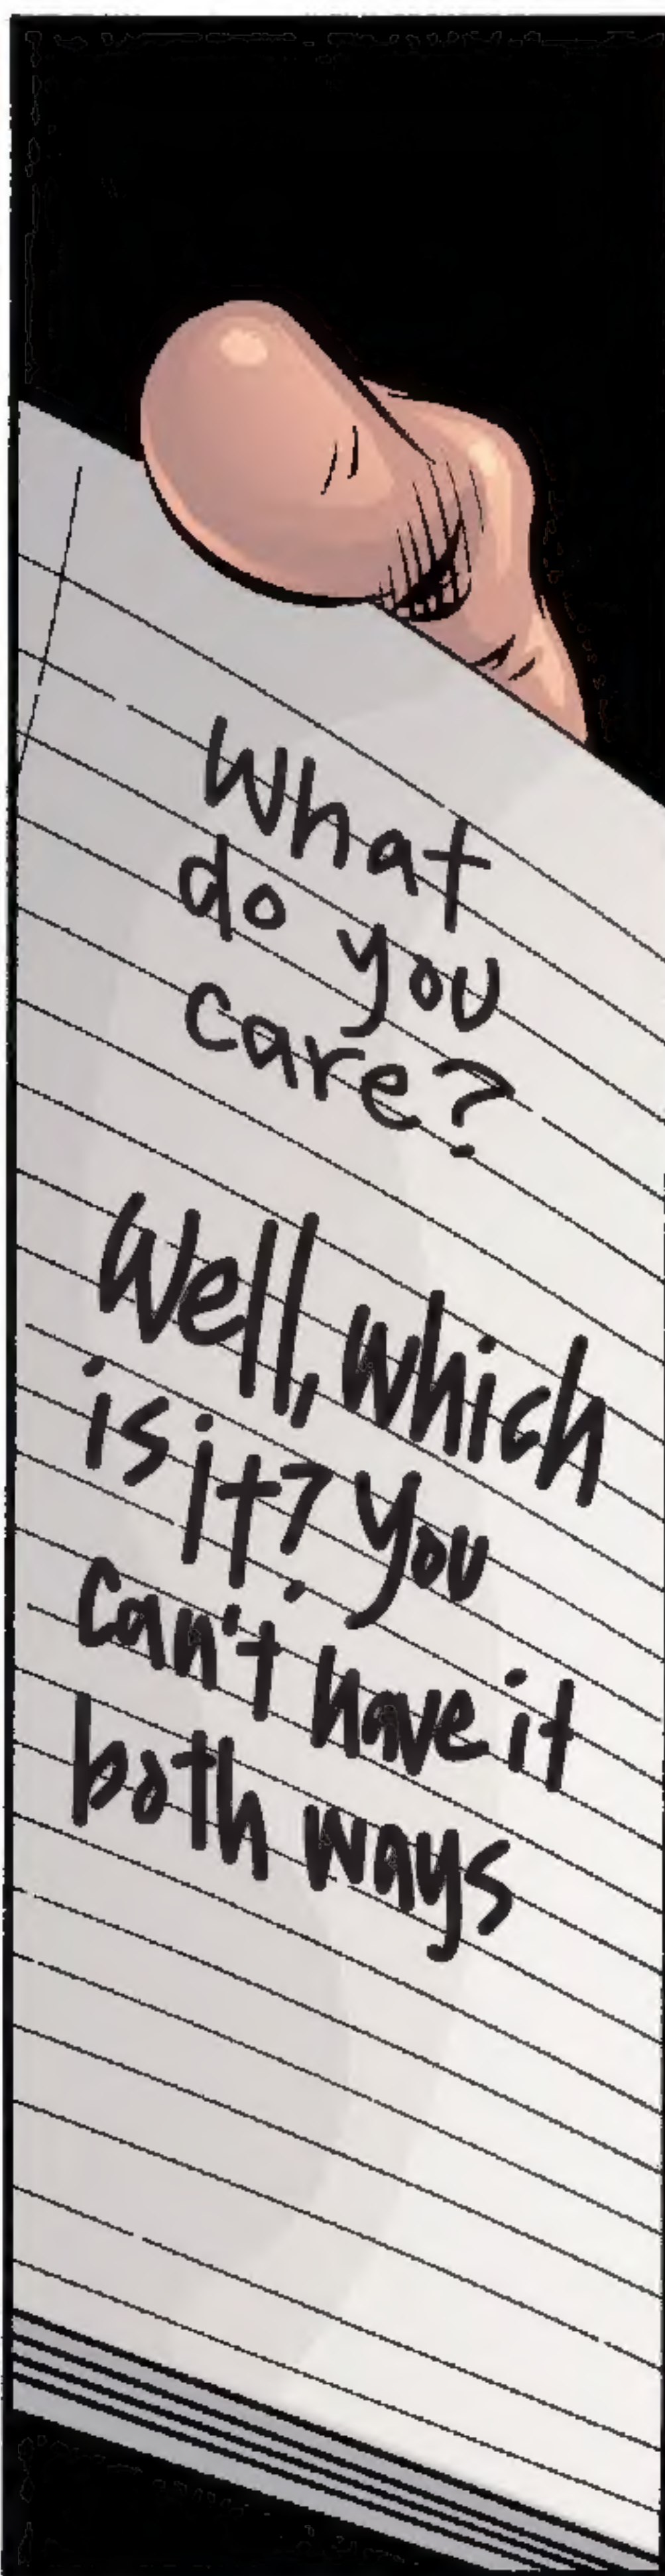 What
do you
care?
Well, which
is it? You
can't have it
both ways